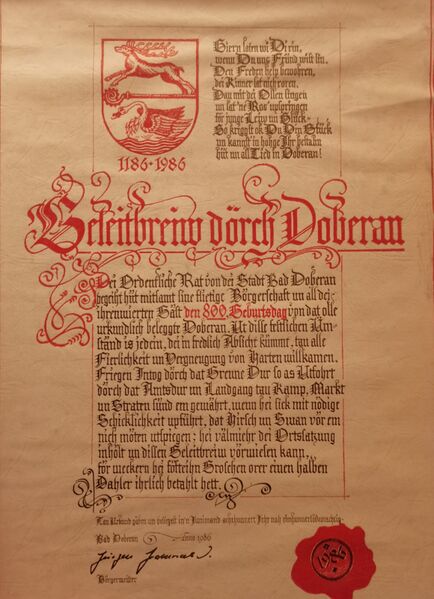 1186-1986
Giern laten wi Di in,
wenn Du uns Fründ wist sin.
Den Freden help bewohren,
dei Kinner lat nich roren.
Dau mit dei Ollen singen
un lat 'ne Ros' upspringen
för junge Leiw un Glück-
So kriggst ok Du Din Stück
un kannst in hohge Ihr bestahn
hüt un all Tied in Doberan!
Geleitbreiw dörch Doberan
Dei Ordentliche Rat von dei Stadt Bad Doberan
begäht hüt mitsamt sine flietige Börgerschaft un all dei
ihrenwierten Gäst den 800. Geburtsdag von dat olle
urkundlich beleggte Doberan. Ut disse festlichen Üm-
ständ is jedein, dei in fredlich Absicht kümmt, tau alle
Fierlichkeit un Vergneugung von Harten willkamen.
Friegen Intog dörch dat Greune Dur so as Utfohrt
dörch dat Amtsdur un Landgang tau Kamp, Markt
un Straten sünd em gewährt, wenn hei sick mit nödige
Schicklichkeit upführt, dat Hirsch un Swan vör em
nich möten utspiegen; hei välmiehr dei Ortssatzung
inhölt un dissen Geleitbreiw vörwiesen kann,
för weckern hei föfteihn Groschen orer einen halben
Dahler ihrlich betahlt hett.
Bad Doberan anno 1986
Börgermeister
1986